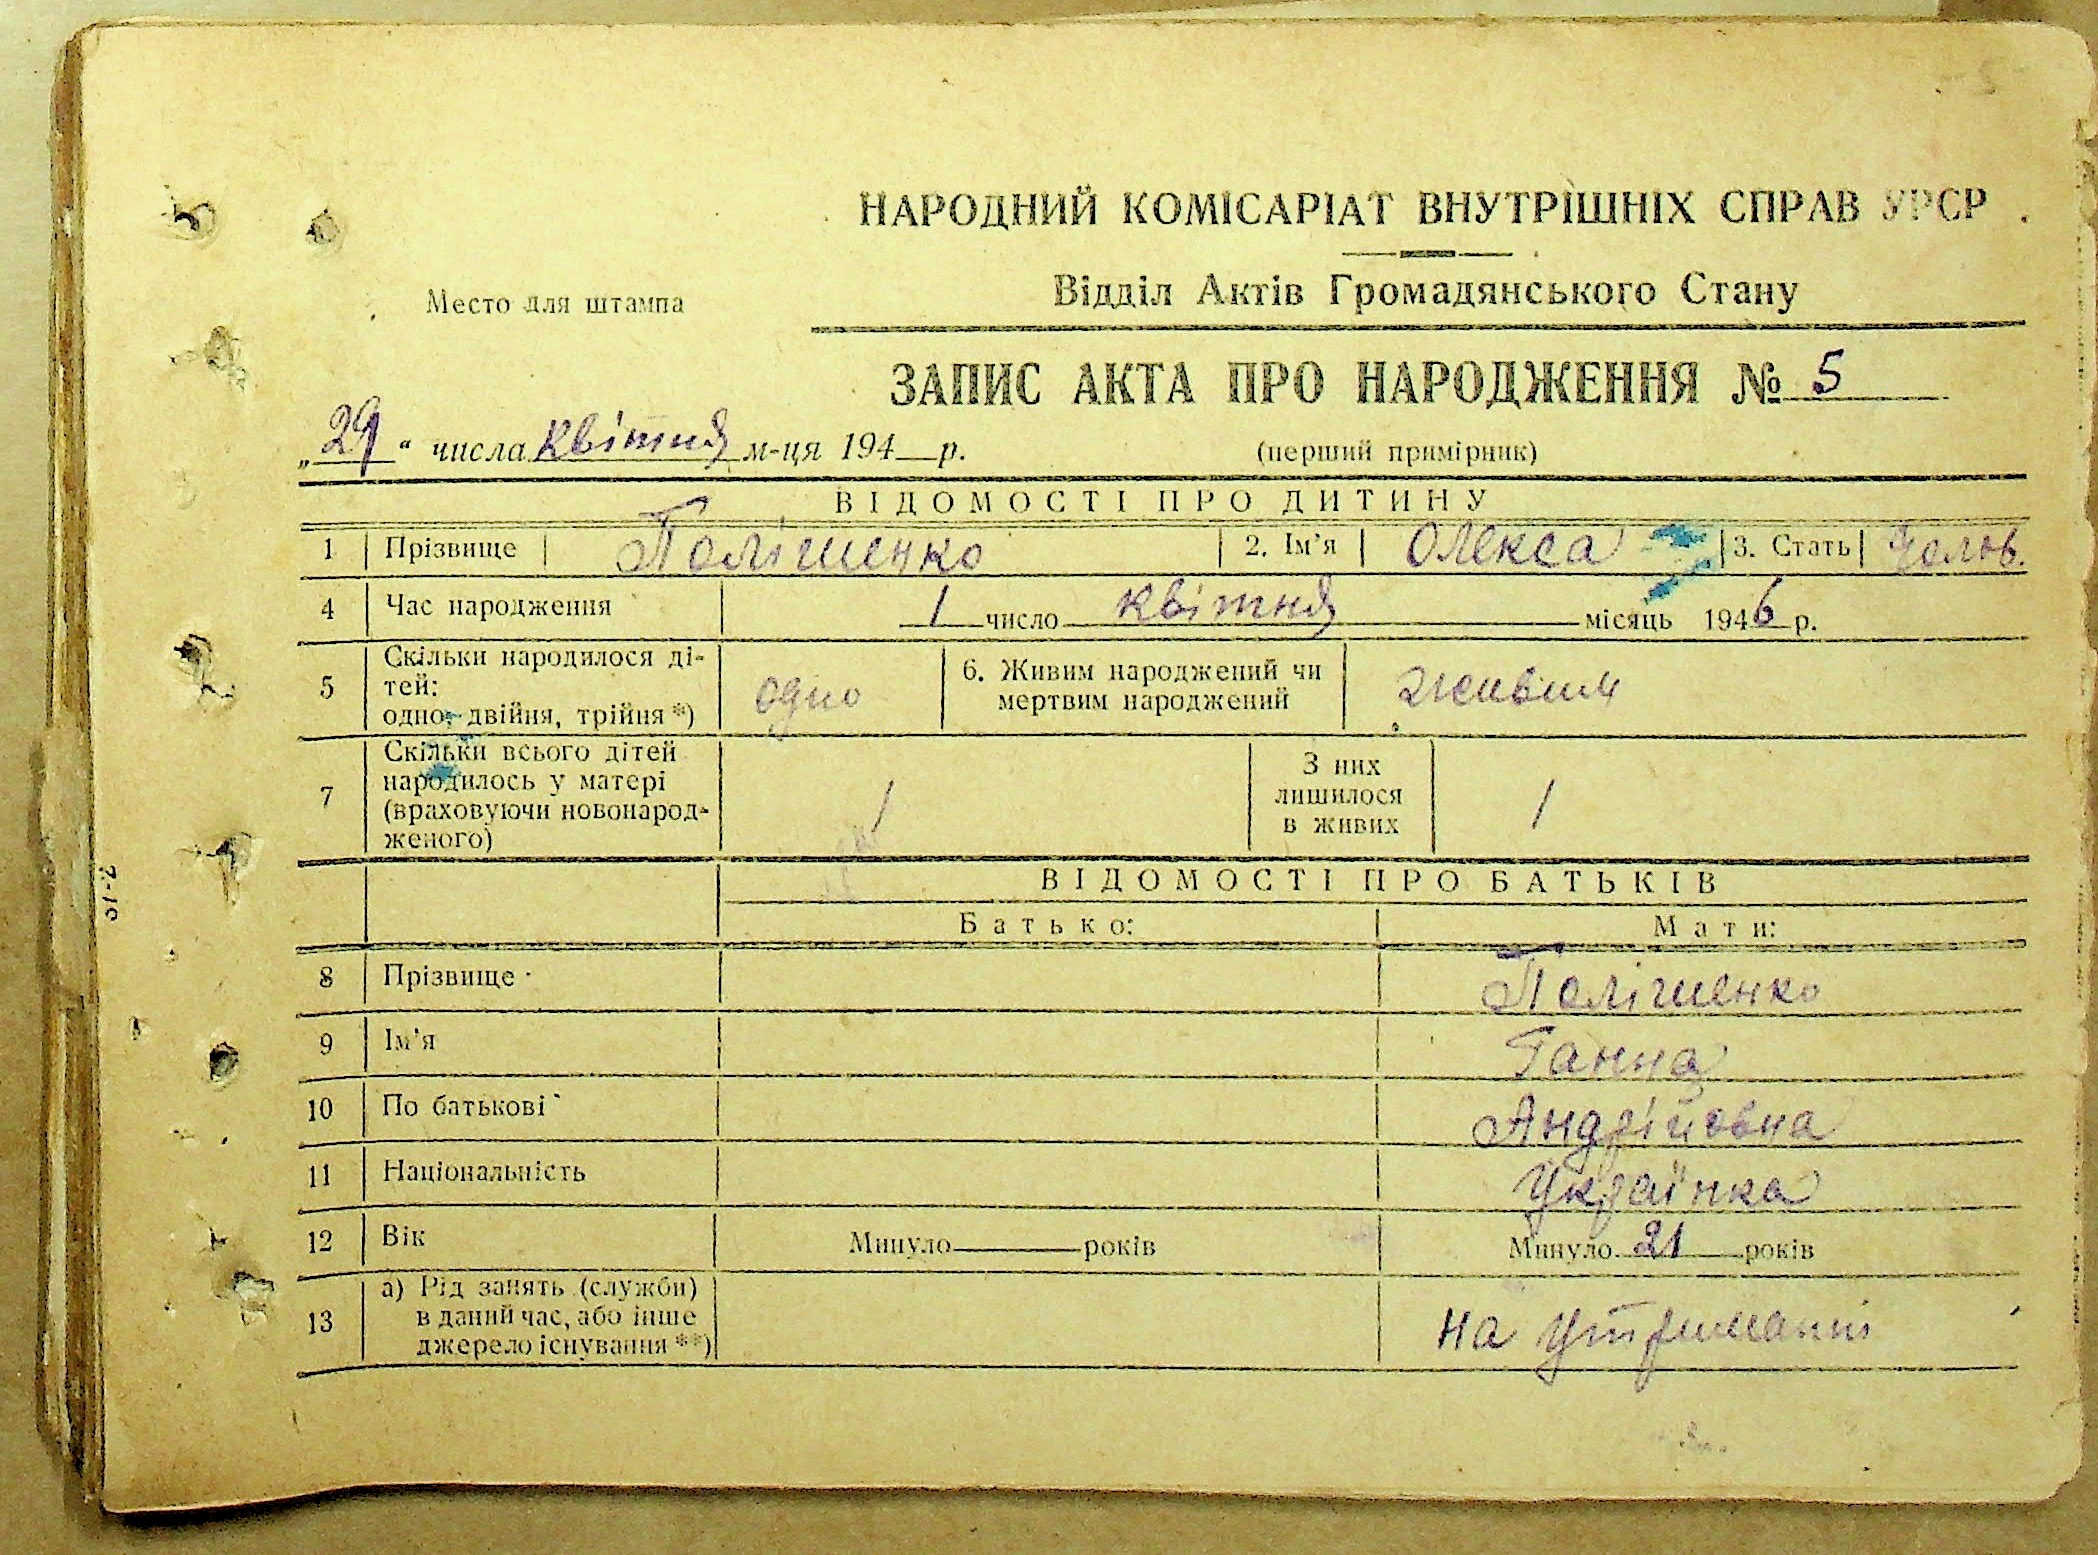 НАРОДНИЙ КОМІСАРІАТ ВНУТРІШНІХ СПРАВ УРСР
Відділ Актів Громадянського Стану
Место для штампа
ЗАПИС АКТА ПРО НАРОДЖЕННЯ № 5
„29“ числа квітня м-ця 194 р.
(перший примірник)
ВІДОМОСТІ ПРО ДИТИНУ
1 Прізвище Полішенко 2. Ім'я Олекса 3. Стать Чолов.
4 Час народження 1 число квітня місяць 1946 р.
5 Скільки народилося ді-
тей:
одно, двійня, трійня *) одно
6. Живим народжений чи
мертвим народжений живим
7 Скільки всього дітей
народилось у матері
(враховуючи новонарод-
женого) 1
З них
лишилося
в живих 1
ВІДОМОСТІ ПРО БАТЬКІВ
Батько: Мати:
8 Прізвище Полішенко
9 Ім'я Ганна
10 По батькові Андрійовна
11 Національність Українка
12 Вік Минуло років Минуло 21 років
13 а) Рід занять (служби)
в даний час, або інше
джерело існування **) на утриманні